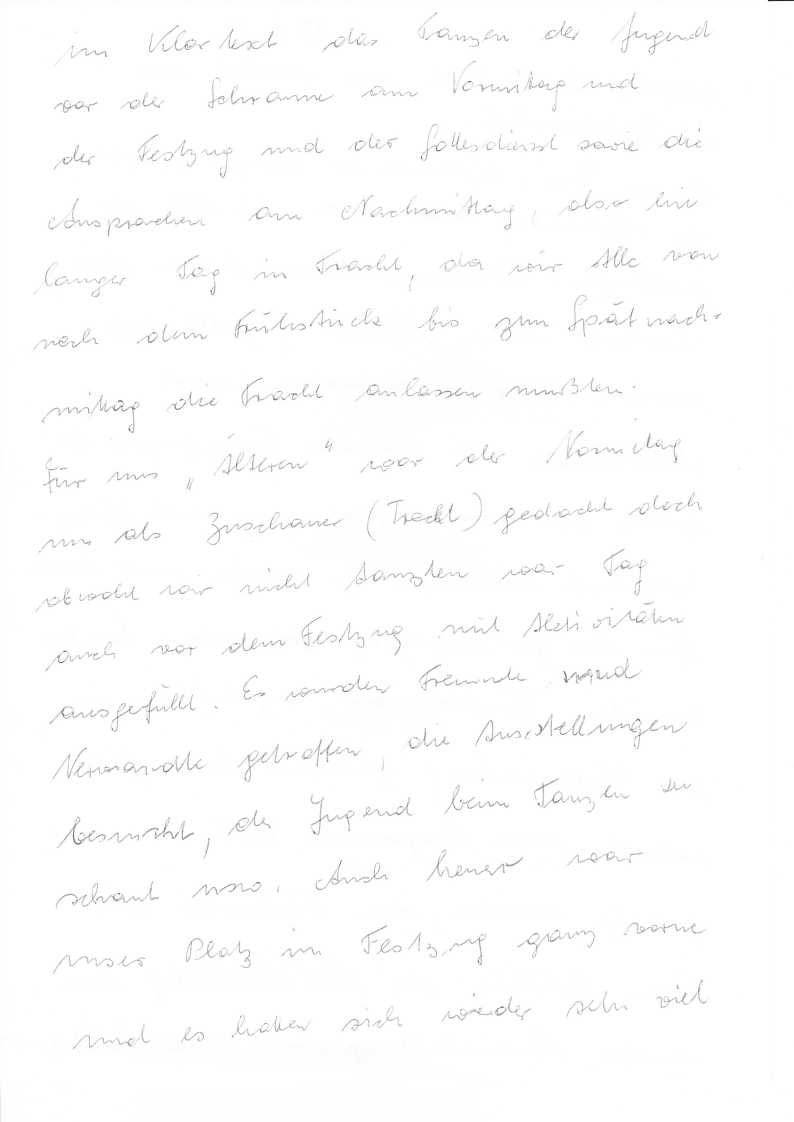 im Klartext das Tanzen der Jugend
vor der Schranne am Vormittag und
der Festzug und der Gottesdienst sowie die
Ansprachen am Nachmittag, also ein
langer Tag in Tracht, da wir Alle von
nach dem Frühstück bis zum Spätnach-
mittag die Tracht anlassen mußten.
Für uns „Älteren" war der Vormittag
nur als Zuschauer (Tracht) gedacht doch
obwohl wir nicht tanzten war Tag
auch vor dem Festzug mit Aktivitäten
ausgefüllt. Es wurden Freunde und
Verwandte getroffen, die Ausstellungen
besucht, der Jugend beim Tanzen zu
schaut usw. Auch heuer war
unser Platz im Festzug ganz vorne
und es haben sich wieder sehr viel